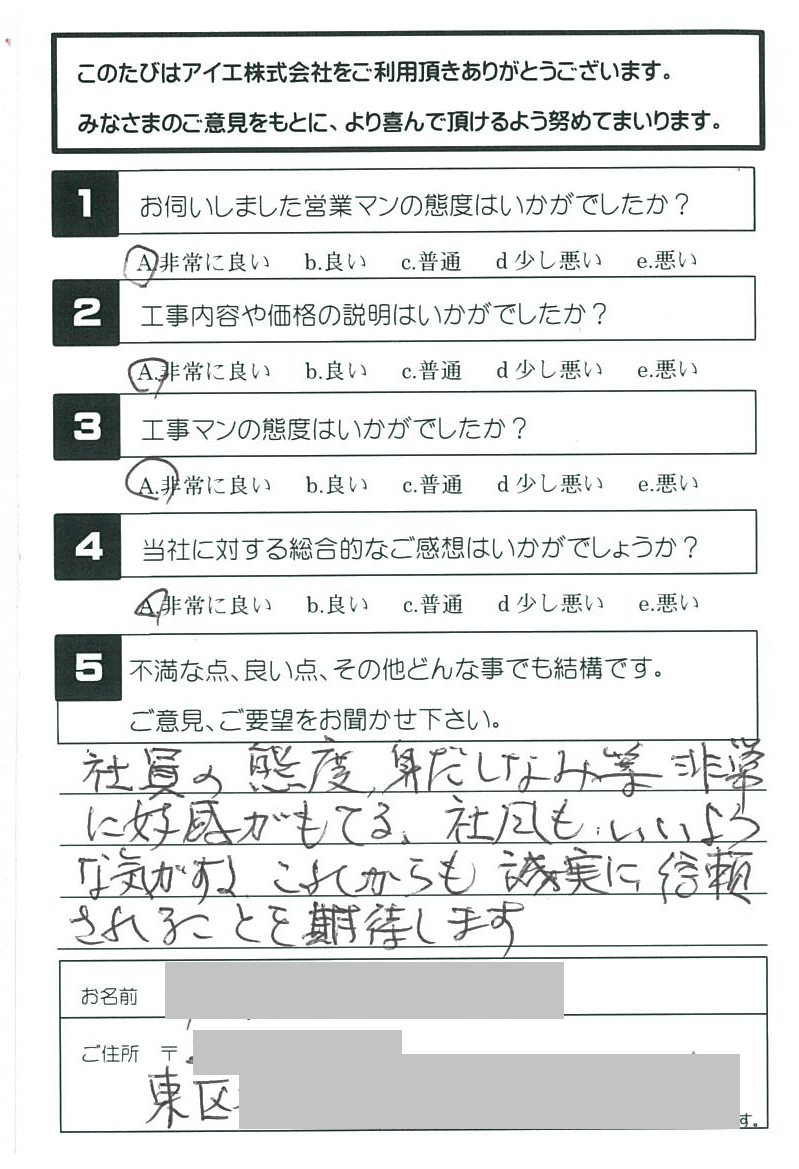 このたびはアイエ株式会社をご利用頂きありがとうございます。
みなさまのご意見をもとに、より喜んで頂けるよう努めてまいります。
1 お伺いしました営業マンの態度はいかがでしたか？
A.非常に良い b.良い c.普通 d 少し悪い e.悪い
2 工事内容や価格の説明はいかがでしたか？
A.非常に良い b.良い c.普通 d 少し悪い e.悪い
3 工事マンの態度はいかがでしたか？
A.非常に良い b.良い c.普通 d 少し悪い e.悪い
4 当社に対する総合的なご感想はいかがでしょうか？
A.非常に良い b.良い c.普通 d 少し悪い e.悪い
5 不満な点、良い点、その他どんな事でも結構です。
ご意見、ご要望をお聞かせ下さい。
社員の態度、身だしなみ等 非常
に好感がもてる、社風も、いいよう
な気がする、これからも 誠実に 信頼
されることを期待します
お名前
ご住所 〒
東区
す。